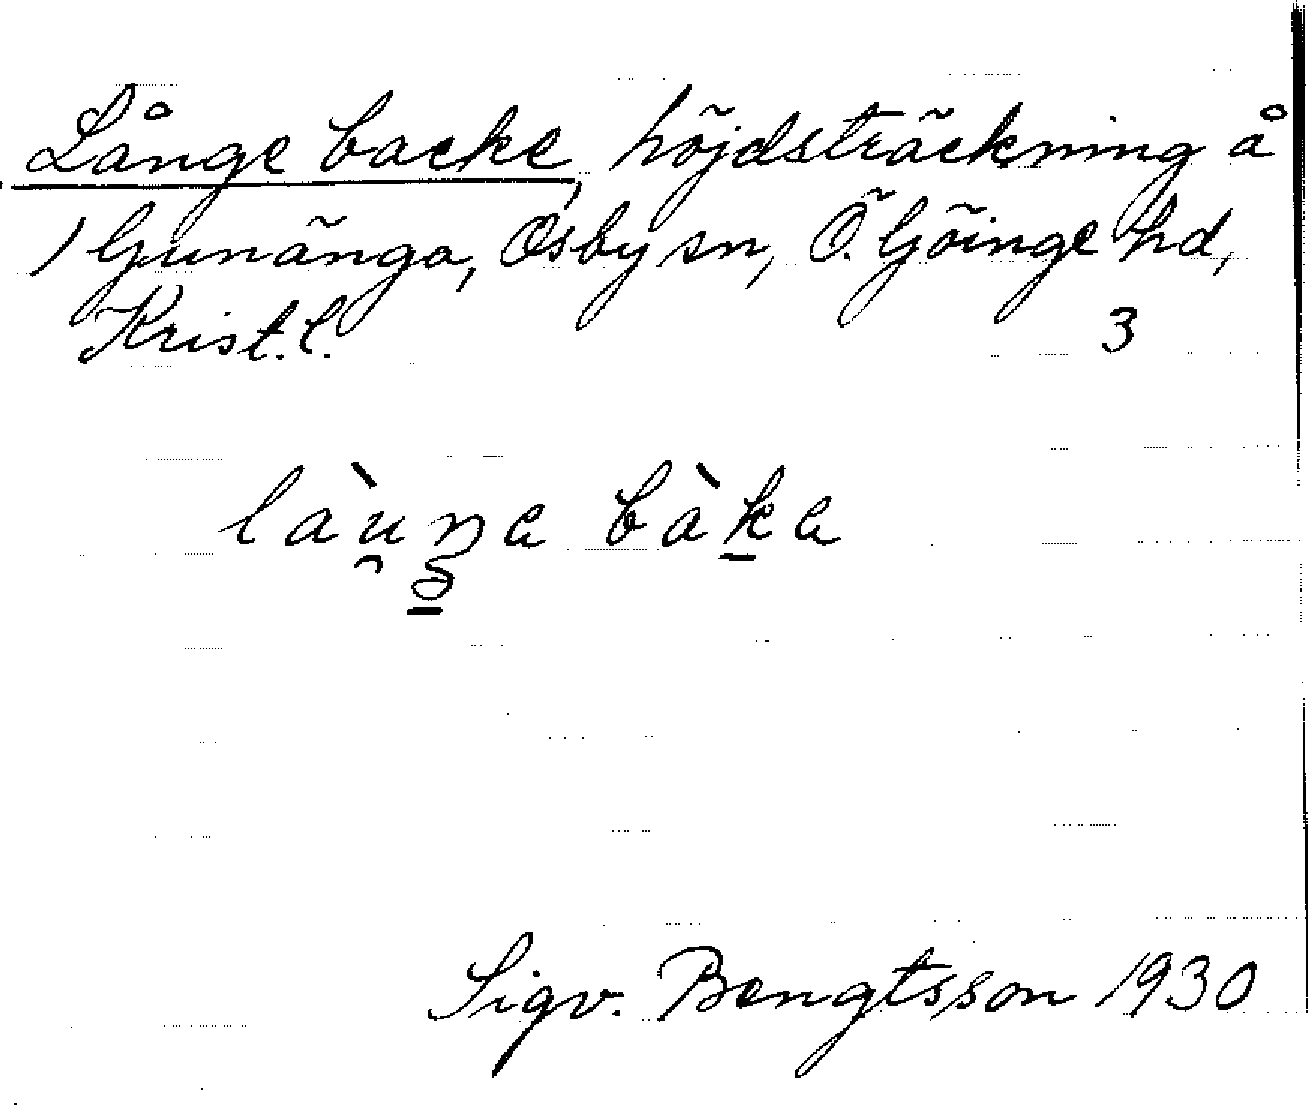 Långe backe, höjdsträckning å
/ Gunänga, Osby sn, Ö. Göinge hd,
Krist. l. 3
làu̯ŋa bàka
Sigv. Bengtsson 1930